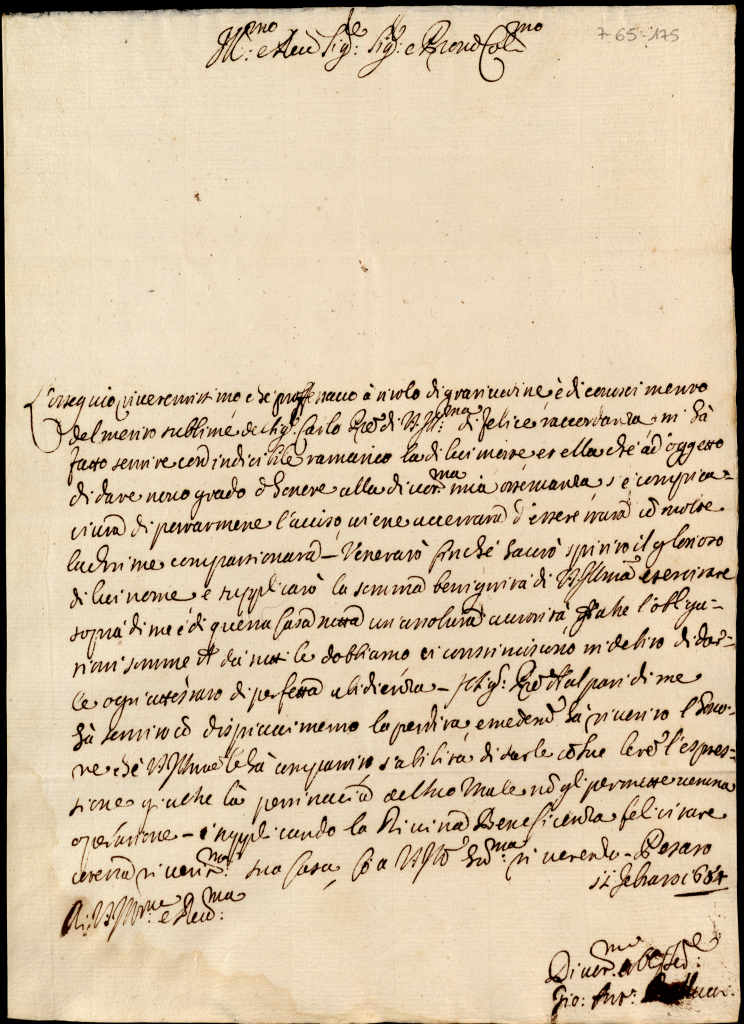 7-65-175
Ill:mo e Reu Sig:re Sig: e Prone Col:mo
L'ossequio riuerentissimo che professauo à titolo di gratitudine è di conoscimento
del merito sublimé del Sig: Carlo di V.S.Ill:ma di felice raccordanza mi hà
fatto sentire con indicibile ramarico la di lui morte et ella che ad oggetto
di dare nouo grado d'honore alla diuot:ma mia osseruanza s'è compia-
ciuta di portarmene l'auiso uiene accertata d'essere stata con molte
lachrime compassionata - Venerarò finché hauerò spirito il glorioso
di lui nome e supplicarò la somma benignità di V.S.Illma esercitare
sopra di me è di questa Casa tutta un'assoluta autorità che l'obliga-
tioni somme che da tutti le dobbiamo ci constituiscono in debito di dar-
le ogni attestato di perfetta ubidienza - Il Sig: al pari di me
hà sentito con dispiacimento la perdita e medem hà riuerito l'hono-
re che V.S.Illma le hà compartito s'abilità di farle l'espres-
sione giache la pertinacia del suo male non gli permette ueruna
operatione - supplicando la Diuina Beneficenza felicitare
cotesta riuerit:ma sua Casa, a V.S. riuerendo - Pesaro
11 Febraro 1684
Di V.S.Ill:ma e Reu:ma
Diuot:mo et Obl Se:re
Gio: Ant: